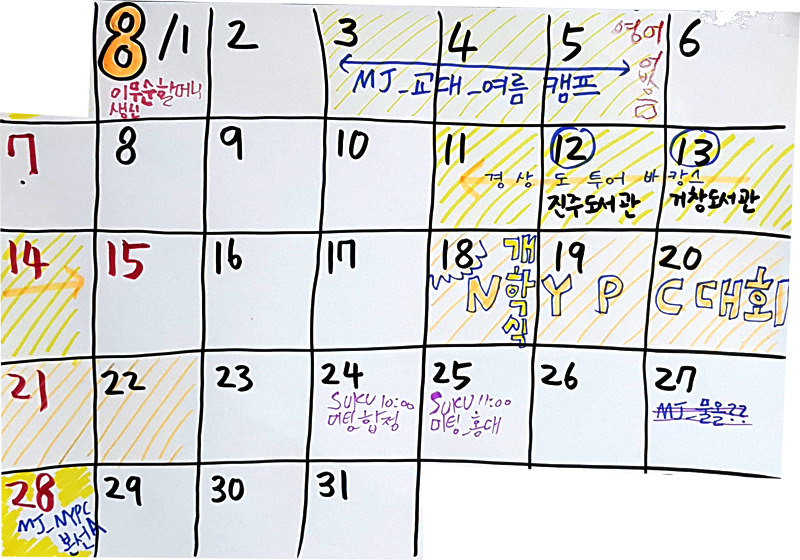 8/1 2 3 4 5 6
이무순할머니
생신
영어
MJ_교대_여름 캠프
7 8 9 10 11 12 13
경상도 투어 바캉스
진주도서관 거창도서관
14 15 16 17 18 19 20
개학식
NYPC대회
21 22 23 24 25 26 27
SUKU 10:00 SUKU 11:00 MJ_물울??
미팅_합정 미팅_홍대
28 29 30 31
MJ_NYPC
본선A